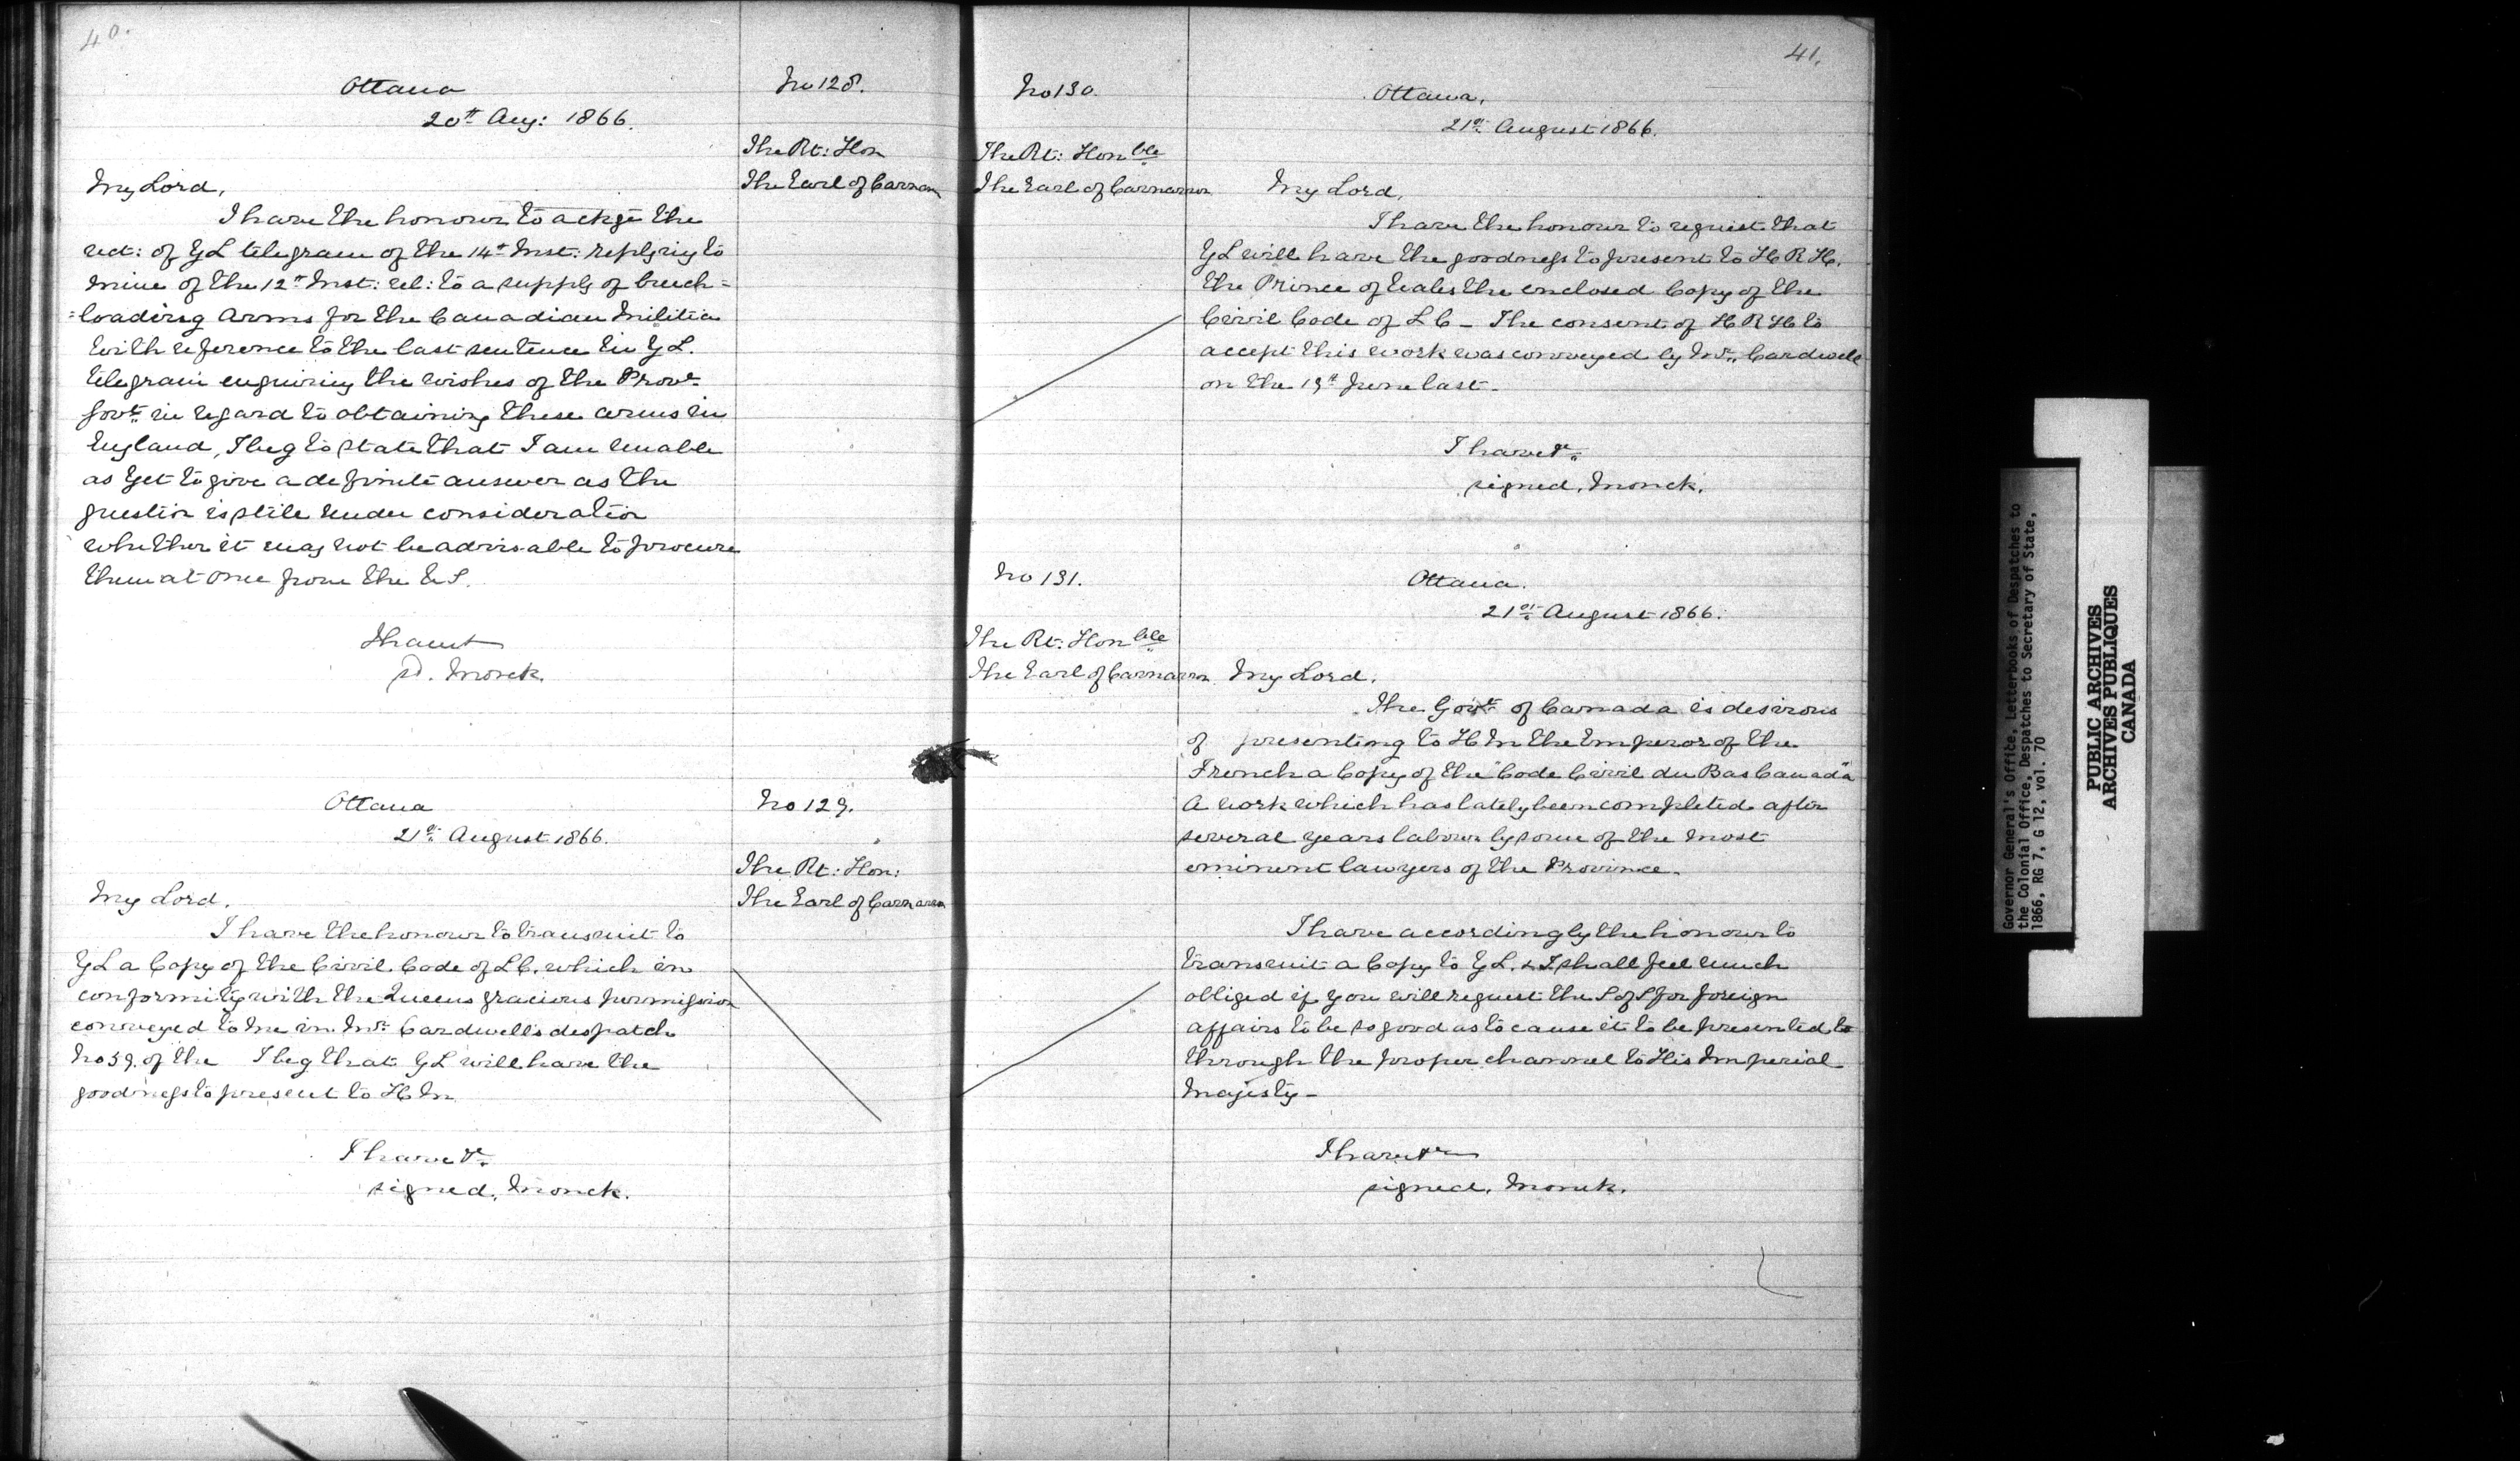 40.
Ottawa
20th Aug: 1866.
No 128.
The Rt: Hon
The Earl of Carnarvon
My Lord,
I have the honour to ackge the
rect: of YL telegram of the 14th Inst: replying to
mine of the 12th Inst: rel: to a supply of breech=
=loading arms for the Canadian Militia
With reference to the last sentence in YL.
telegram enquiring the wishes of the Provl
Govt in regard to obtaining these arms in
England, I beg to state that I am unable
as yet to give a definite answer as the
question is still under consideration
whether it may not be advisable to procure
them at once from the U S.
I have &c
sd. Monck.
Ottawa
21st August 1866.
No 129.
The Rt: Hon:
The Earl of Carnarvon
My Lord.
I have the honour to transmit to
YL a Copy of the Civil Code of LC. which in
conformity with the Queens gracious permission
conveyed to me in Mr Cardwell's despatch
No 59. of the I beg that YL will have the
goodness to present to H M
I have &c
signed, Monck.
41.
No 130.
Ottawa,
21st August 1866.
The Rt: Honble
The Earl of Carnarvon
My Lord,
I have the honour to request that
YL will have the goodness to present to H R H.
the Prince of Wales the enclosed Copy of the
Civil Code of L C – The consent of H R H to
accept this work was conveyed by Mr. Cardwell
on the 19th June last –
I have &c
signed, Monck.
No 131.
Ottawa.
21st August 1866.
The Rt: Honble
The Earl of Carnarvon
My Lord.
The Govt of Canada is desirous
of presenting to H M the Emperor of the
French a Copy of the "Code Civil du Bas Canada"
a work which has lately been completed after
several years labour by some of the most
eminent lawyers of the Province.
I have accordingly the honour to
transmit a Copy to YL. & I shall feel much
obliged if you will request the S of S for foreign
affairs to be so good as to cause it to be presented to
through the proper channel to His Imperial
Majesty –
I have &c
signed, Monck.
Governor General's Office, Letterbooks of Despatches to
the Colonial Office, Despatches to Secretary of State,
1866, RG 7, G 12, vol. 70
PUBLIC ARCHIVES
ARCHIVES PUBLIQUES
CANADA